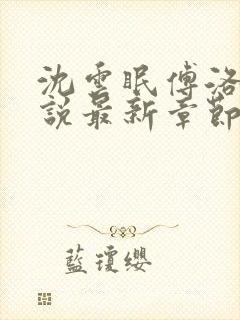 沈雲眠傅洛
說最新章節
藍瓊纓